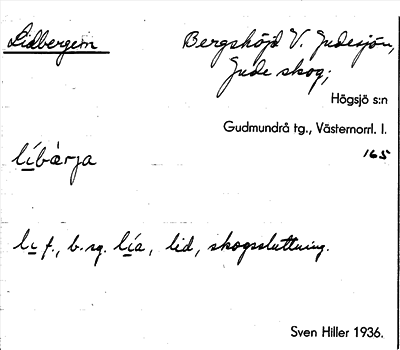 Lidbergen
Bergshöjd V. Judesjön,
Jude skog;
Högsjö s:n
Gudmundrå tg., Västernorrl. l.
165
lìbàrja
lı f., b. sg. lía, lid, skogssluttning.
Sven Hiller 1936.